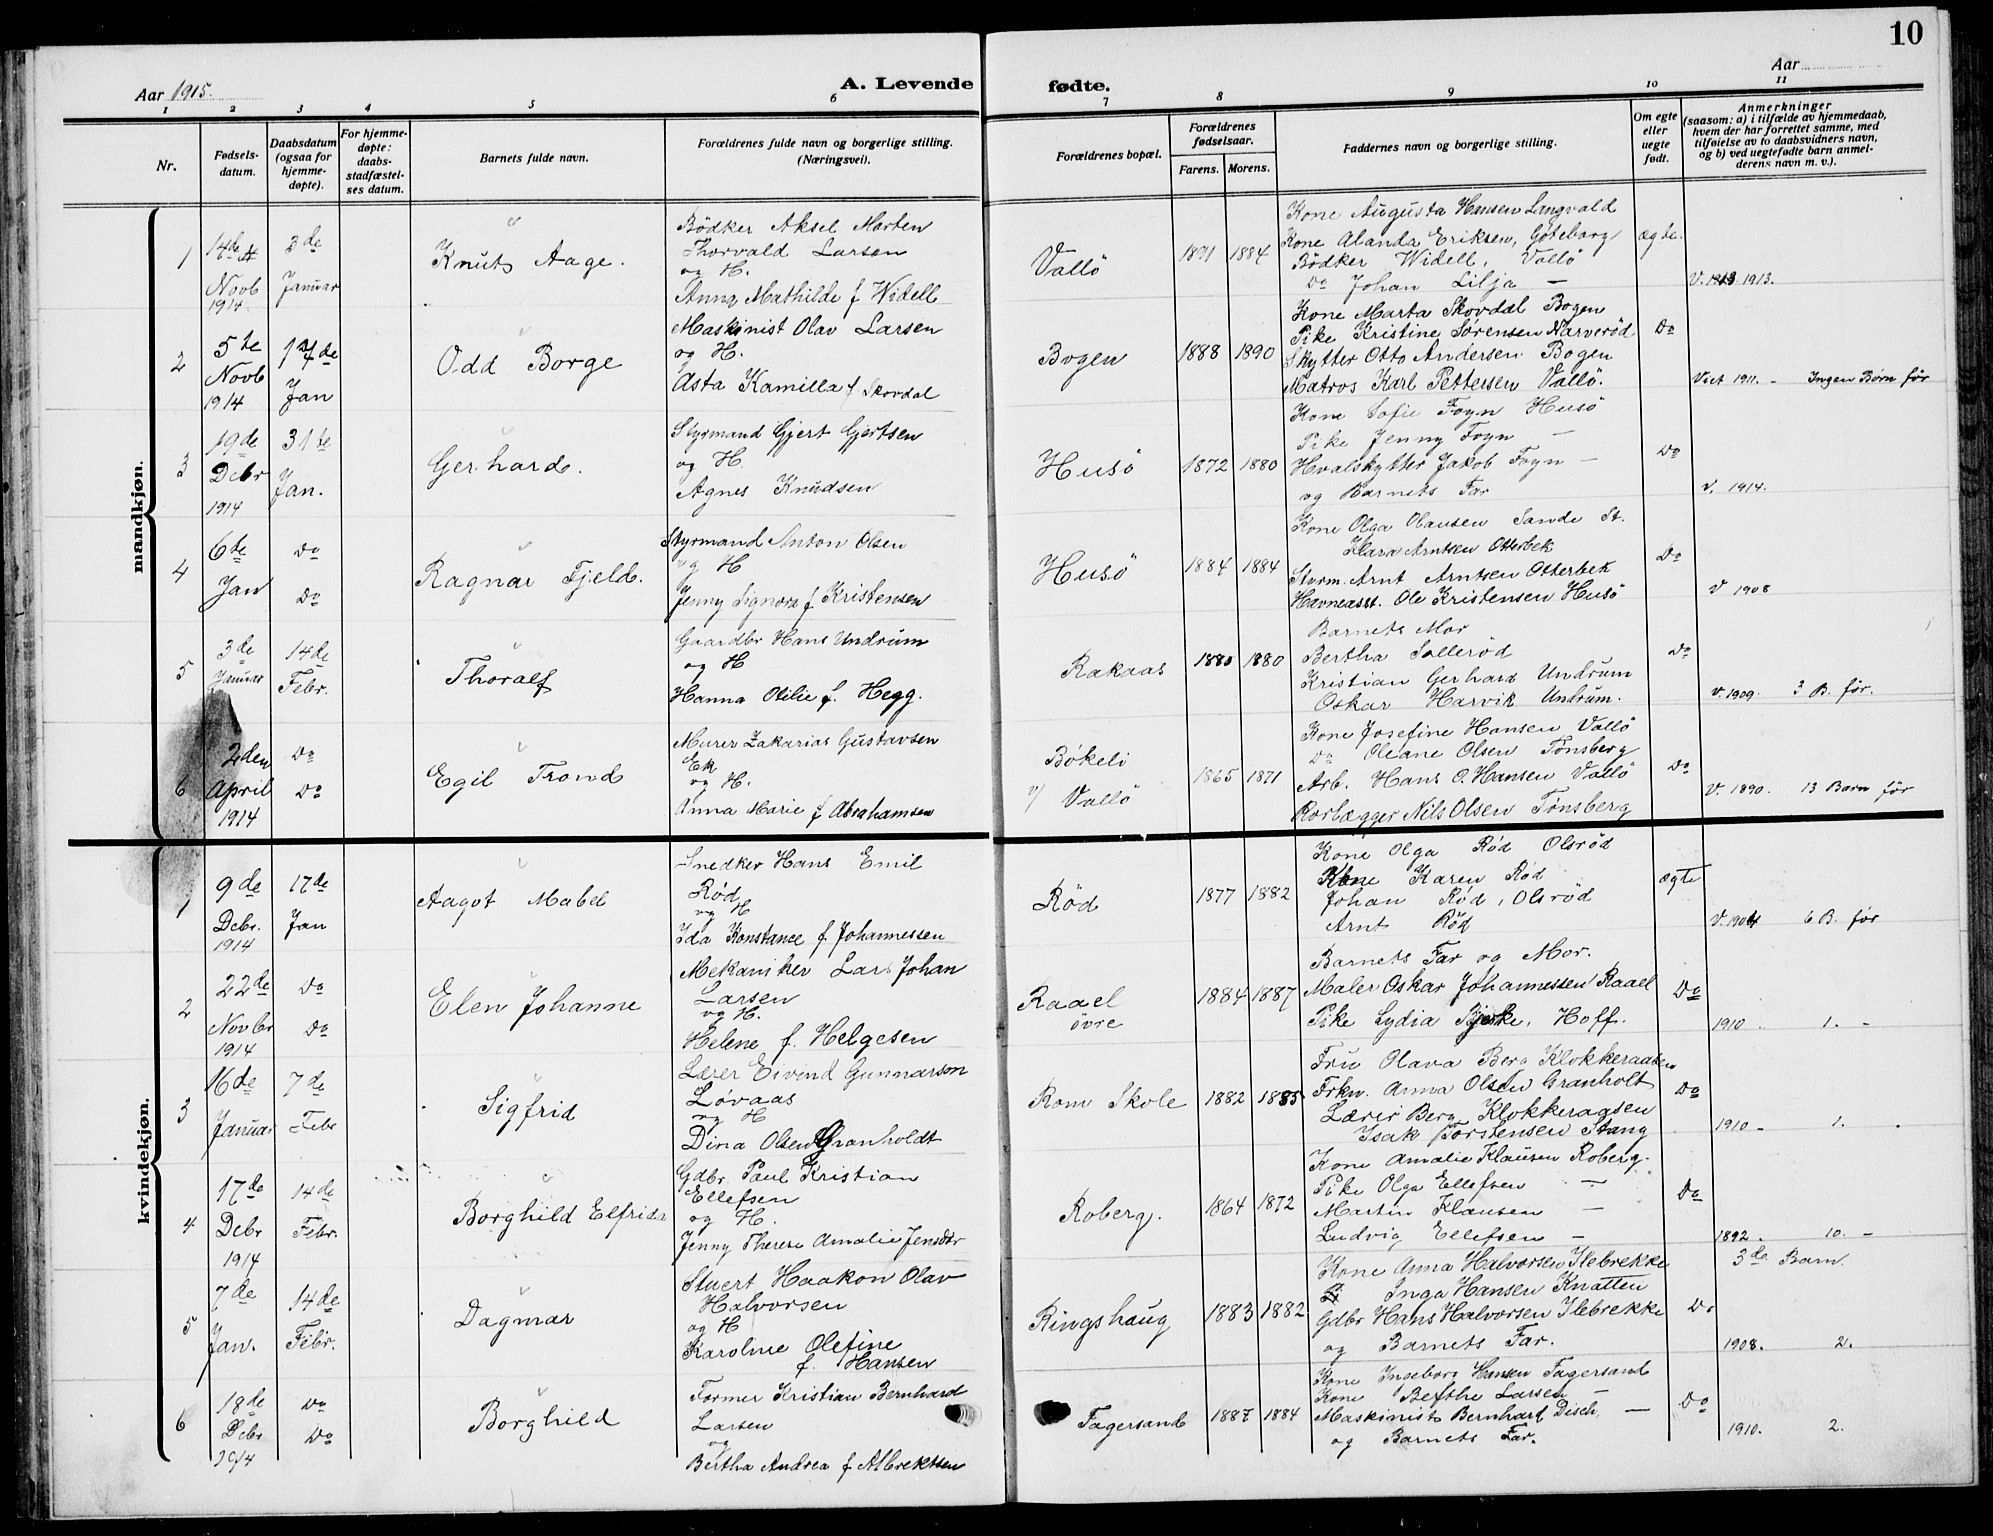 10
Aar 1915.
A. Levende fødte.
Aar
1 2 3 4 5 6 7 8 9 10 11
Nr.
Fødsels-
datum.
Daabsdatum
(ogsaa for
hjemme-
døpte).
For hjemme-
døpte:
daabs-
stadfæstel-
ses datum.
Barnets fulde navn.
Forældrenes fulde navn og borgerlige stilling.
(Næringsvei).
Forældrenes bopæl.
Forældrenes
fødselsaar.
Farens. Morens.
Faddernes navn og borgerlige stilling.
Om egte
eller
uegte
født.
Anmerkninger
(saasom: a) i tilfælde av hjemmedaab,
hvem der har forrettet samme, med
tilføielse av to daabsvidners navn,
og b) ved uegtefødte barn anmel-
derens navn m. v.).
mandkjøn.
1
14de
Novb
1914
3de
Januar
Knut Aage.
Bödker Aksel Morten
Thorvald Larsen
og H.
Anna Mathilde f Widell
Vallö
1891 1884
Kone Augusta Hansen Langvald
Kone Alanda Eriksen, Göteborg
Bödker Widell, Vallö
Do Johan Lilja —
ægte.
V. 1913.
2
5te
Novb
1914
17de
Jan
Odd Borge
Maskinist Olav Larsen
og H.
Asta Kamilla f Skovdal
Bogen
1888 1890
Kone Marta Skovdal Bogen
Pike Kristine Sørensen Narverød
Skytter Otto Andersen Bogen
Matros Karl Pettersen Vallö.
Do
Viet 1911. - Ingen Børn før
3
19de
Debr
1914
31te
Jan.
Gerhard.
Styrmand Gjert Gjertsen
og H.
Agnes Knudsen
Husö
1872 1880
Kone Sofie Foyn Husö
Pike Jenny Foyn —
Hvalskytter Jakob Foyn —
og Barnets Far
Do
V. 1914.
4
6te
Jan
Do
Do
Ragnar Fjeld.
Styrmand Anton Olsen
og H
Jenny Signora f Kristensen
Husö
1884 1884
Kone Olga Olausen Sande St.
Klara Arntsen Otterbek
Styrm. Arnt Arntsen Otterbek
Havneasst. Ole Kristensen Husö
Do
V 1908
5
3de
Januar
14de
Febr.
Thoralf
Gaardbr Hans Undrum
og H
Hanna Otilie f. Hegg.
Rakaas
1880 1880
Barnets Mor
Bertha Sollerød
Kristian Gerhard Undrum
Oskar Harvik Undrum.
Do
V. 1909. 3 B. før.
6
2den
April
1914
Do
Do
Egil Trond
Murer Zakarias Gustavsen
Ek
og H.
Anna Marie f Abrahamsen
Bökeli
v/ Vallö
1865 1871
Kone Josefine Hansen Vallö
Do Oleane Olsen Tønsberg
Arb. Hans O. Hansen Vallö
Rorlægger Nils Olsen Tønsberg
Do
V. 1890. 13 Barn før
kvindekjøn.
1
9de
Debr.
1914
17de
Jan
Aagot Mabel
Snedker Hans Emil
Rød
og H
Ida Konstance f. Johannessen
Rød
1877 1882
Kone Olga Rød Olsrød
Kone Karen Rød
Johan Rød, Olsrød
Arnt Rød
ægte
V. 1904 6 B. før
2
22de
Novbr
1914
Do
Do
Elen Johanne
Mekaniker Lars Johan
Larsen
og H.
Helene f. Helgesen
Raael
övre
1884 1887
Barnets Far og Mor.
Maler Oskar Johannessen Raael
Pike Lydia Bjerke, Hoff.
Do
1910 - 1. -
3
16de
Januar
7de
Febr
Sigfrid
Lærer Eivind Gunnarson
Løvaas
og H
Dina Olsen Granholdt
Rom Skole
1882 1885
Fru Olava Berg Klokkeraasen
Frkn. Anna Olsen Granholt
Lærer Berg Klokkeraasen
Isak Torstensen Stang
Do
1910 - 1. -
4
17de
Debr
1914
14de
Febr.
Borghild Elfrida
Gdbr. Paul Kristian
Ellefsen
og H.
Jenny Therese Amalie Jensdtr
Roberg.
1864 1872
Kone Amalie Klausen Roberg.
Pike Olga Ellefsen —
Martin Klausen —
Ludvig Ellefsen —
Do
1892. 10. -
5
7de
Jan.
14de
Febr.
Dagmar
Stuert Haakon Olav
Halvorsen
og H
Karoline Olefine
f. Hansen
Ringshaug
1883 1882
Kone Anna Halvorsen Ilebrekke
Inga Hansen Knatten
Gdbr Hans Halvorsen Ilebrekke
og Barnets Far.
Do
3de Barn
1908. 2.
6
18de
Debr
1914
Do
Do
Borghild
Former Kristian Bernhard
Larsen
og
Bertha Andrea f Albrektsen
Fagersand
1887 1884
Kone Ingeborg Hansen Fagersand
Kone Berthe Larsen —
Maskinist Bernhard Disch, —
og Barnets Far.
Do
1910. 2.